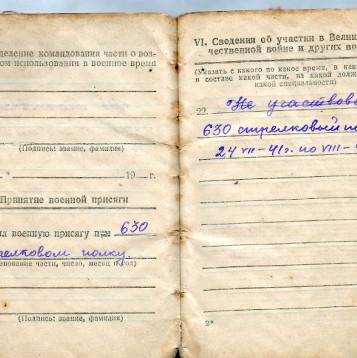 деление командования части о воз-
ом использовании в военное время
(Подпись: звание, фамилия)
19 г.
Принятие военной присяги
ял военную присягу при 630
релковом полку.
(Наименование части, число, месяц и год)
(Подпись: звание, фамилия)
VI. Сведения об участии в Велик
чественной войне и других во
(Указать с какого по какое время, в как
в составе какой части, на какой долж
какой специальности)
22. Не участвова
630 стрелковый п
24 VII-41г. по VIII-4
2*